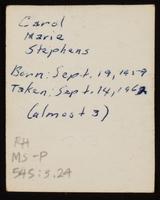 Carol
Marie
Stephens
Born: Sept. 19, 1959
Taken: Sept. 14, 1962
(almost 3)
RH
MS-P
545:5.24